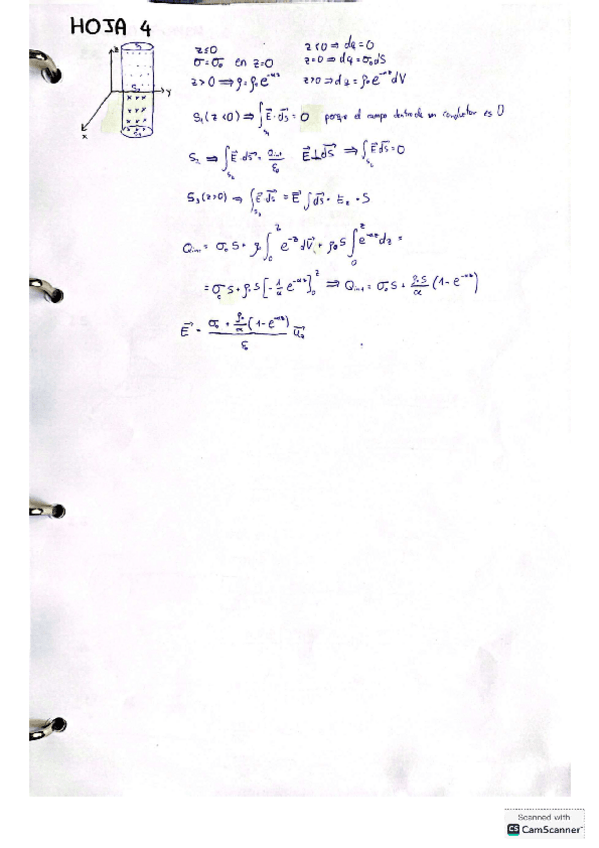 HOJA 4
z≤0
z<0 ⇒ dq=0
σ=σ₀ en z=0
z=0 ⇒ dq=σ₀dS
z>0 ⇒ ρ=ρ₀e^{-αz}
z>0 ⇒ dq=ρ₀e^{-αz}dV
z
y
x
S₂
S₁(z<0) ⇒ ∫_{S₁} E⃗·dS⃗ = 0 porque el campo dentro de un conductor es 0
S₂ ⇒ ∫_{S₂} E⃗·dS⃗ = Qint/ε₀ E⃗⊥dS⃗ ⇒ ∫_{S₂} E⃗dS⃗=0
S₃(z>0) ⇒ ∫_{S₃} E⃗·dS⃗ = E⃗ ∫dS⃗ = E₂ · S
Qint = σ₀S + ρ₀ ∫₀^z e^{-z} dV⃗ + ρ₀S ∫₀^z e^{-αz} dz =
= σ₀S + ρ₀S [-1/α e^{-αz}]₀^z ⇒ Qint = σ₀S + ρ₀S/α (1-e^{-αz})
E⃗ = (σ₀ + ρ₀/α (1-e^{-αz}))/ε₀ u⃗
Scanned with
CS CamScanner